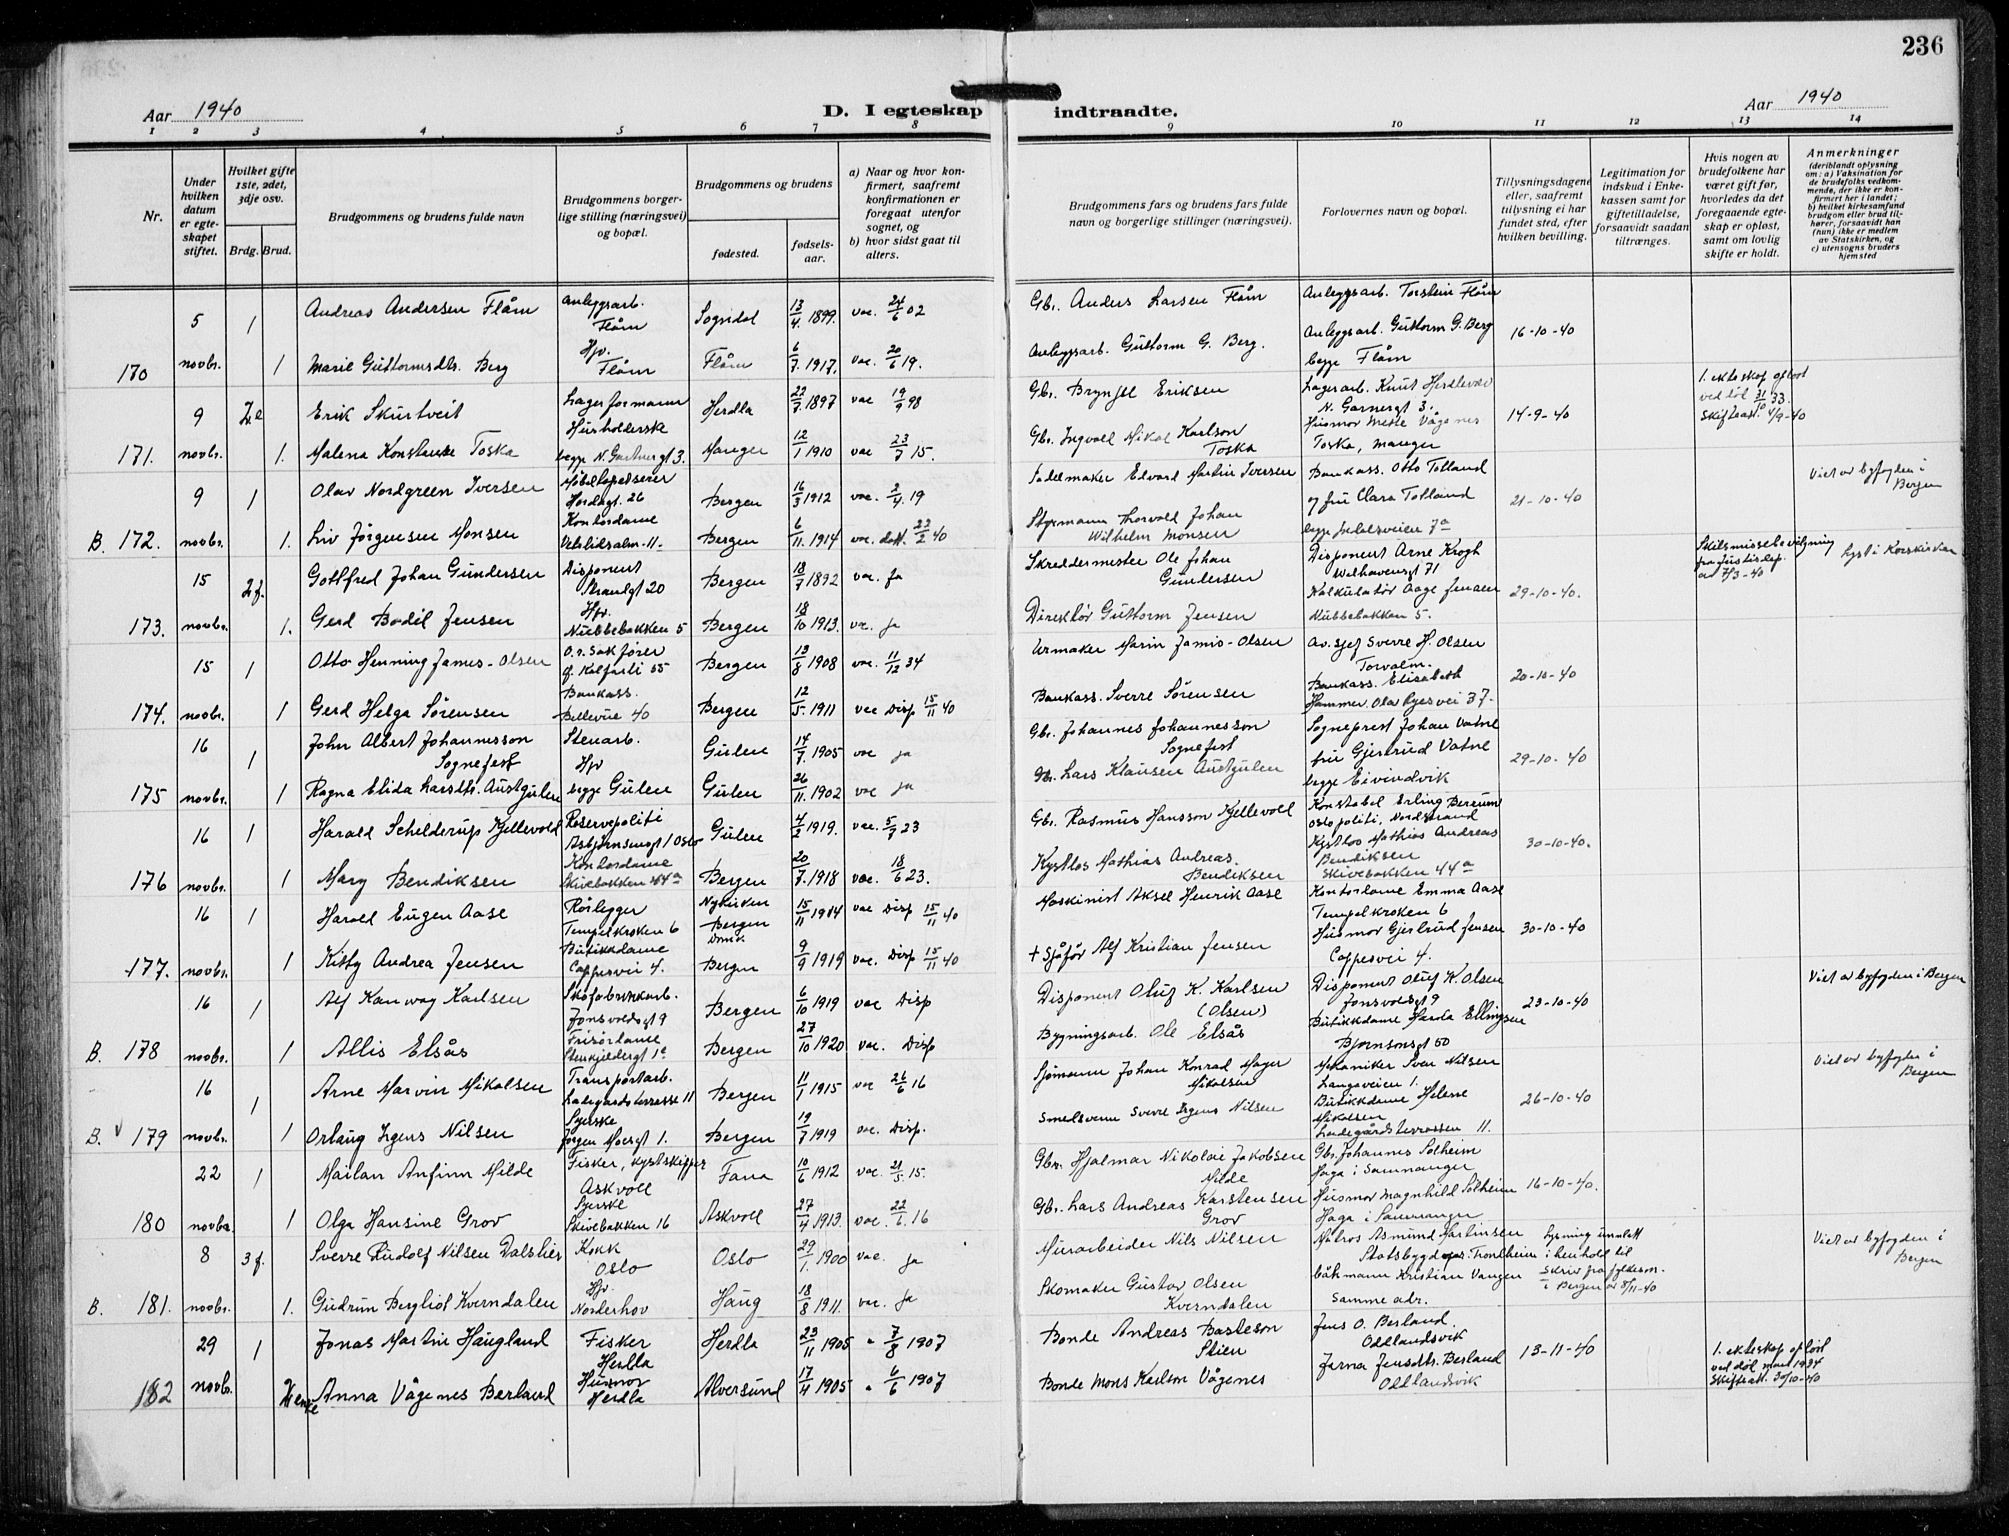 236
Aar 1940
D. I egteskap indtraadte.
Aar 1940
1 2 3 4 5 6 7 8 9 10 11 12 13 14
Nr.
Under hvilken datum er egte-skapet stiftet.
Hvilket gifte 1ste, 2det, 3dje osv.
Brdg. Brud.
Brudgommens og brudens fulde navn
Brudgommens borger-lige stilling (næringsvei) og bopæl.
Brudgommens og brudens
fødested.
fødsels-aar.
a) Naar og hvor kon-firmert, saafremt konfirmationen er foregaat utenfor sognet, og
b) hvor sidst gaat til alters.
Brudgommens fars og brudens fars fulde navn og borgerlige stillinger (næringsvei).
Forlovernes navn og bopæl.
Tillysningsdagene eller, saafremt tillysning ei har fundet sted, efter hvilken bevilling.
Legitimation for indskud i Enke-kassen samt for giftetilladelse, forsaavidt saadan tiltrænges.
Hvis nogen av brudefolkene har været gift før, hvorledes da det foregaaende egte-skap er opløst, samt om lovlig skifte er holdt.
Anmerkninger
(deriblandt oplysning om: a) Vaksination for de brudefolks vedkom-mende, der ikke er kon-firmert her i landet; b) hvilket kirkesamfund brudgom eller brud til-hører, forsaavidt han (hun) ikke er medlem av Statskirken, og c) utensogns bruders hjemsted
5 1 Andreas Andersen Flåm Anleggsarb. Flåm Sogndal 13/4 1899. vac. 24/6 02 Gbr. Anders Larsen Flåm Anleggsarb. Torstein Flåm
170 novbr. 1 Marie Guttormsdtr. Berg Hjv. Flåm Flåm 6/7 1917. vac. 20/6 19. Anleggsarb. Guttorm G. Berg. Anleggsarb. Guttorm G. Berg begge Flåm 16-10-40
9 2e Erik Skurtveit Lagerformann Herdla 22/7 1897 vac 19/9 98 Gbr. Bryngel Eriksen Lagerarb. Knut N. Garnergt 3. 14-9-40 1. ekteskap opløst ved död 31/10 33. Skifteatt. 4/9-40
171. novbr. 1. Malena Konstanse Toska Husholderske begge N. Garnergt 3. Manger 12/1 1910 vac 23/7 15. Gbr. Ingvald Mikal Karlson Toska Husmor Mette Vågenes Toska, Manger
9 1 Olav Nordgreen Iversen Möbeltapetserer Hordagt. 26 Bergen 16/3 1912 vac. 2/4. 19 Sadelmaker Edvard Martin Iversen Bankass. Otto Tolland 21-10-40 Viet av byfogden i Bergen
B. 172. novbr. 1. Liv Jörgensen Monsen Kontordame Bergen 6/11. 1914 vac. datt. 22/2 40 Styrmann Thorvald Johan Wilhelm Monsen og fru Clara Tolland
15 2f. Gottfred Johan Gundersen Disponent Strandgt 20 Bergen 18/7 1892 vac. ja Skreddermester Ole Johan Gundersen Disponent Arne Krogh Welhavensgt 71 29-10-40. Skilsmissebevilgning fra Justisdep. av 7/3-40 Lyst i Korskirken
173. novbr. 1. Gerd Bodil Jensen Hjv. Nubbebakken 5 Bergen 18/10 1913. vac. ja Direktör Guttorm Jensen Kalkulatör Aage Jensen Nubbebakken 5.
15 1 Otto Henning James-Olsen O.r.sakfører Ö. Kalfarli 55 Bergen 13/8 1908 vac. 11/12 34 Urmaker Marin James-Olsen Av. sjef Sverre H. Olsen Torvalm. 20-10-40
174. novbr. 1 Gerd Helga Sörensen Bankass. Bellevue 40 Bergen 12/5 1911 vac Disp 15/11 40 Bankass. Sverre Sörensen Bankass. Elisabeth Hammer, Olav Ryesvei 37.
16 1 John Albert Johannesson Sognefest Stenarb. Gulen 14/7. 1905 vac ja Gbr. Johannes Johannesson Sognefest Sogneprest Johan Vatne 29-10-40
175 novbr. 1 Ragna Elida Larsdtr. Austgulen Hjv begge Gulen Gulen 26/11. 1902 vac ja Gbr. Lars Klausen Austgulen fru Gjertrud Vatne begge Eivindvik
16 1 Harald Schelderup Kjellevold Reservepoliti Asbjørnsensgt 1 Oslo Gulen 4/2 1919. vac. 5/9 23 Gbr. Rasmus Hansson Kjellevold Konstabel Erling Bereum Oslo politi, Nordstrand 30-10-40.
176 novbr. 1 Mary Bendiksen Kontordame Skivebakken 44a Bergen 20/7. 1918 vac. 18/6 23. Kystlos Mathias Andreas Bendiksen Kystlos Mathias Andreas Bendiksen Skivebakken 44a
16 1 Harald Eugen Aase Rörlegger Tempelkroken 6 Nykirken Bergen Domk 15/11 1914 vac Disp 15/11 40 Maskinist Aksel Henrik Aase Kontordame Emma Aase Tempelkroken 6 30-10-40
177. novbr. 1 Kitty Andrea Jensen Butikkdame Cappesvei 4. Bergen 9/9 1919 vac. Disp 15/11 40 + Sjåför Alf Kristian Jensen Husmor Gjertrud Jensen Cappesvei 4.
16 1 Alf Kanwag Karlsen Skofabrikkarb. Jonsvoldsgt 9 Bergen 6/10 1919 vac Disp Disponent Oluf K. Karlsen (Olsen) Disponent Oluf K. Olsen Jonsvoldsgt 9 23-10-40 Viet av byfogden i Bergen
B. 178 novbr. 1 Allis Elsås Frisördame Stenkjeldergt 1c Bergen 27/10 1920 vac. Disp Bygningsarb. Ole Elsås Butikkdame Harda Ellingsen Bjørnsonsgt 50
16 1 Arne Marvin Mikalsen Transportarb. Ladegårdsterrasse 11 Bergen 11/1 1915 vac 26/6 16 Sjömann Johan Konrad Mayer Mikalsen Mekaniker Sven Nilsen Langaveien 1. 26-10-40 Viet av byfogden i Bergen
B. V 179 novbr. 1 Orlaug Irgens Nilsen Syerske Jörgen Moesgt 1. Bergen 19/7 1919 vac. Disp. Smedsvenn Sverre Irgens Nilsen Butikkdame Helene Mikalsen Ladegårdsterrassen 11.
22 1 Mailan Anfinn Milde Fisker, kystskipper Askvoll Fana 10/6 1912 vac 21/5. 15. Gbr. Hjalmar Nikolai Jakobsen Milde Gbr. Johannes Solheim Haga i Samnanger 16-10-40.
180 novbr. 1 Olga Hansine Grov Syerske Skivebakken 16 Askvoll 27/4 1913. vac. 22/6. 16 Gbr. Lars Andreas Karstensen Grov Husmor Magnhild Solheim Haga i Samnanger
8 3f. Sverre Rudolf Nilsen Dalslier Kokk Oslo Oslo 29/1. 1900 vac. ja Murarbeider Nils Nilsen Matros Asmund Martinsen Trondheim Lysning unnlatt i henhold til skriv fra fylkesm. i Bergen av 8/11-40 Viet av byfogden i Bergen
B. 181. novbr. 1. Gudrun Bergliot Kverndalen Hjv. Norderhov Haug 18/8 1911 vac. ja Skomaker Gustav Olsen Kverndalen båtsmann Kristian Vangen samme adr.
29 1 Jonas Martin Haugland Fisker Herdla Herdla 23/11 1905 " 7/8 1907 Bonde Andreas Basteson Skien Jens O. Berland. Odlandsvik 13-11-40 1. ekteskap opløst ved död mars 1934 Skifteatt. 30/10-40
182 novbr. Enke Anna Vågenes Berland Husmor Herdla Alversund 17/4 1905 " 6/6 1907 Bonde Mons Karlson Vågenes Jarma Jensdtr. Berland Odlandsvik